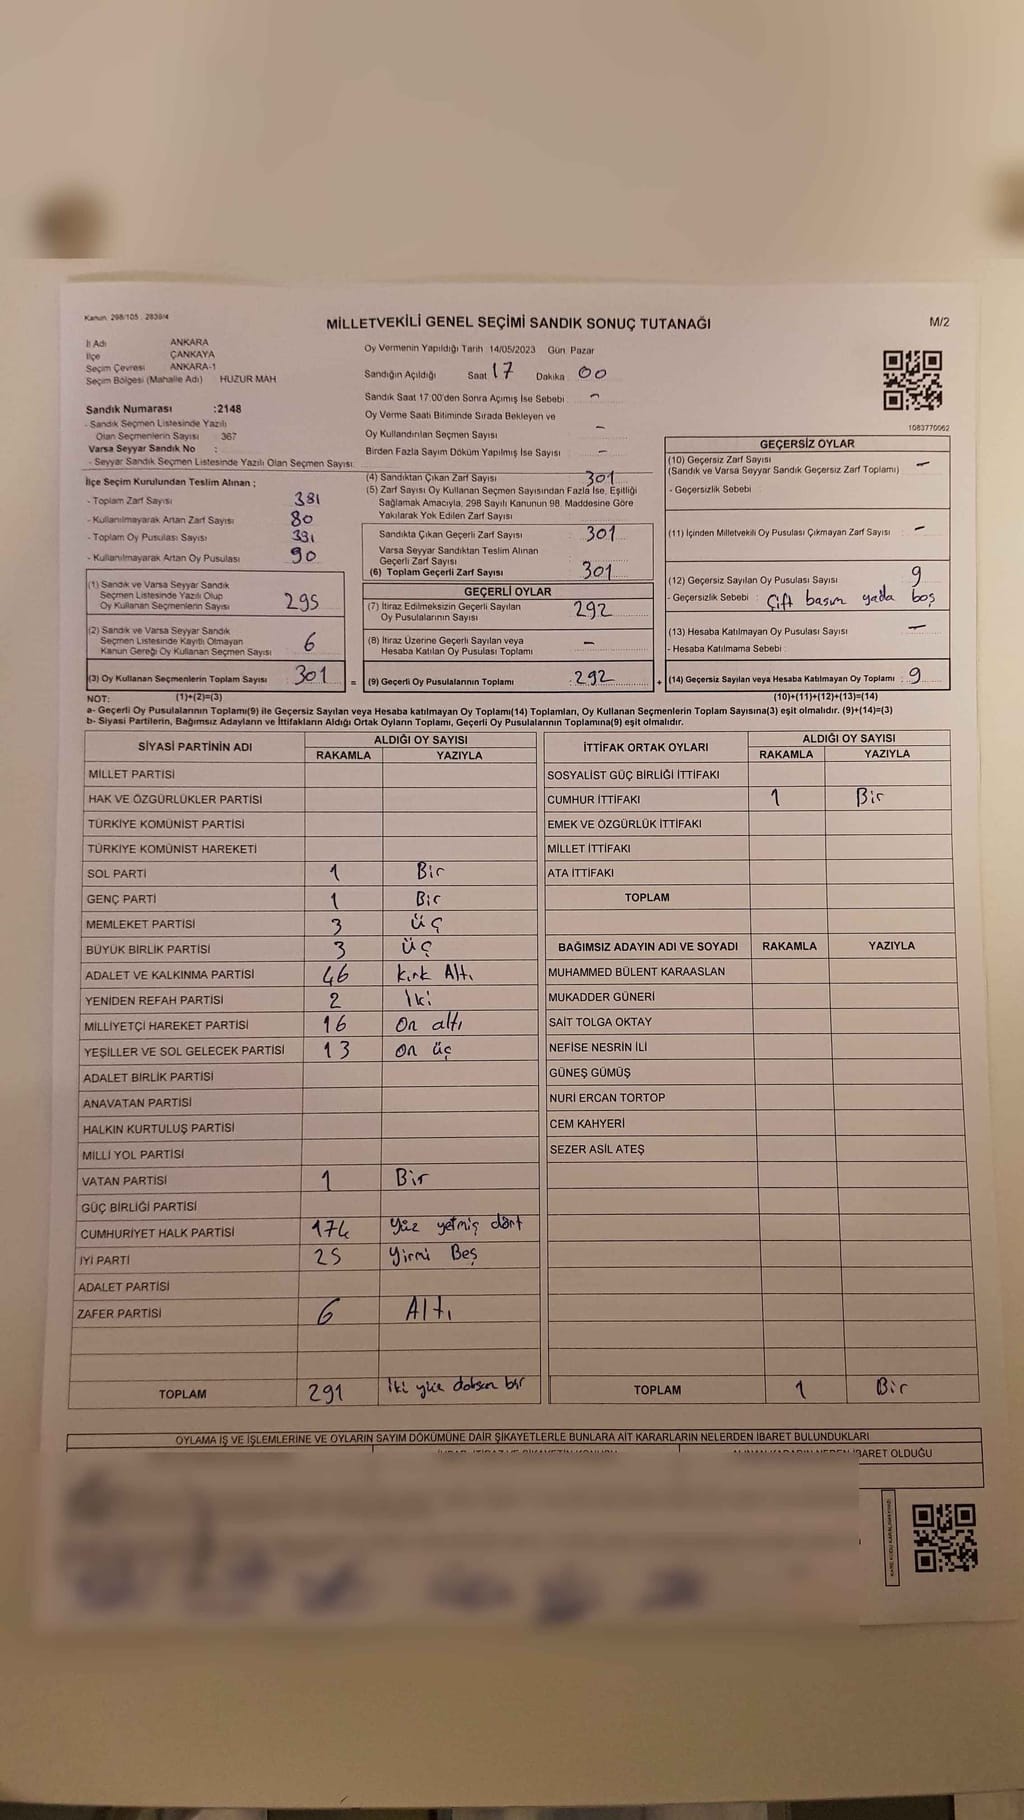 Kanun: 298/105 : 2839/4
MİLLETVEKİLİ GENEL SEÇİMİ SANDIK SONUÇ TUTANAĞI
M/2
İl Adı ANKARA
İlçe ÇANKAYA
Seçim Çevresi ANKARA-1
Seçim Bölgesi (Mahalle Adı) HUZUR MAH
Sandık Numarası :2148
- Sandık Seçmen Listesinde Yazılı
Olan Seçmenlerin Sayısı 367
Varsa Seyyar Sandık No :
- Seyyar Sandık Seçmen Listesinde Yazılı Olan Seçmen Sayısı:
Oy Vermenin Yapıldığı Tarih 14/05/2023 Gün Pazar
Sandığın Açıldığı Saat 17 Dakika 00
Sandık Saat 17:00'den Sonra Açımış İse Sebebi -
Oy Verme Saati Bitiminde Sırada Bekleyen ve
Oy Kullandırılan Seçmen Sayısı -
Birden Fazla Sayım Döküm Yapılmış İse Sayısı -
1083770062
İlçe Seçim Kurulundan Teslim Alınan ;
- Toplam Zarf Sayısı 381
- Kullanılmayarak Artan Zarf Sayısı 80
- Toplam Oy Pusulası Sayısı 391
- Kullanılmayarak Artan Oy Pusulası 90
(1) Sandık ve Varsa Seyyar Sandık
Seçmen Listesinde Yazılı Olup
Oy Kullanan Seçmenlerin Sayısı 295
(2) Sandık ve Varsa Seyyar Sandık
Seçmen Listesinde Kayıtlı Olmayan
Kanun Gereği Oy Kullanan Seçmen Sayısı 6
(3) Oy Kullanan Seçmenlerin Toplam Sayısı 301 =
(4) Sandıktan Çıkan Zarf Sayısı 301
(5) Zarf Sayısı Oy Kullanan Seçmen Sayısından Fazla İse, Eşitliği
Sağlamak Amacıyla, 298 Sayılı Kanunun 98. Maddesine Göre
Yakılarak Yok Edilen Zarf Sayısı
Sandıkta Çıkan Geçerli Zarf Sayısı 301
Varsa Seyyar Sandıktan Teslim Alınan
Geçerli Zarf Sayısı
(6) Toplam Geçerli Zarf Sayısı 301
GEÇERLİ OYLAR
(7) İtiraz Edilmeksizin Geçerli Sayılan
Oy Pusulalarının Sayısı 292
(8) İtiraz Üzerine Geçerli Sayılan veya
Hesaba Katılan Oy Pusulası Toplamı -
(9) Geçerli Oy Pusulalarının Toplamı :292 +
GEÇERSİZ OYLAR
(10) Geçersiz Zarf Sayısı
(Sandık ve Varsa Seyyar Sandık Geçersiz Zarf Toplamı) -
- Geçersizlik Sebebi
(11) İçinden Milletvekili Oy Pusulası Çıkmayan Zarf Sayısı -
(12) Geçersiz Sayılan Oy Pusulası Sayısı 9
- Geçersizlik Sebebi : Çift basım yada boş
(13) Hesaba Katılmayan Oy Pusulası Sayısı -
- Hesaba Katılmama Sebebi
(14) Geçersiz Sayılan veya Hesaba Katılmayan Oy Toplamı : 9
NOT: (1)+(2)=(3) (10)+(11)+(12)+(13)=(14)
a- Geçerli Oy Pusulalarının Toplamı(9) ile Geçersiz Sayılan veya Hesaba katılmayan Oy Toplamı(14) Toplamları, Oy Kullanan Seçmenlerin Toplam Sayısına(3) eşit olmalıdır. (9)+(14)=(3)
b- Siyasi Partilerin, Bağımsız Adayların ve İttifakların Aldığı Ortak Oyların Toplamı, Geçerli Oy Pusulalarının Toplamına(9) eşit olmalıdır.
SİYASİ PARTİNİN ADI ALDIĞI OY SAYISI
RAKAMLA YAZIYLA
MİLLET PARTİSİ
HAK VE ÖZGÜRLÜKLER PARTİSİ
TÜRKİYE KOMÜNİST PARTİSİ
TÜRKİYE KOMÜNİST HAREKETİ
SOL PARTİ 1 Bir
GENÇ PARTİ 1 Bir
MEMLEKET PARTİSİ 3 üç
BÜYÜK BİRLİK PARTİSİ 3 üç
ADALET VE KALKINMA PARTİSİ 46 kırk Altı
YENİDEN REFAH PARTİSİ 2 İki
MİLLİYETÇİ HAREKET PARTİSİ 16 On altı
YEŞİLLER VE SOL GELECEK PARTİSİ 13 on üç
ADALET BİRLİK PARTİSİ
ANAVATAN PARTİSİ
HALKIN KURTULUŞ PARTİSİ
MİLLİ YOL PARTİSİ
VATAN PARTİSİ 1 Bir
GÜÇ BİRLİĞİ PARTİSİ
CUMHURİYET HALK PARTİSİ 174 Yüz yetmiş dört
İYİ PARTİ 25 Yirmi Beş
ADALET PARTİSİ
ZAFER PARTİSİ 6 Altı
TOPLAM 291 iki yüz doksan bir
İTTİFAK ORTAK OYLARI ALDIĞI OY SAYISI
RAKAMLA YAZIYLA
SOSYALİST GÜÇ BİRLİĞİ İTTİFAKI
CUMHUR İTTİFAKI 1 Bir
EMEK VE ÖZGÜRLÜK İTTİFAKI
MİLLET İTTİFAKI
ATA İTTİFAKI
TOPLAM
BAĞIMSIZ ADAYIN ADI VE SOYADI RAKAMLA YAZIYLA
MUHAMMED BÜLENT KARAASLAN
MUKADDER GÜNERİ
SAİT TOLGA OKTAY
NEFİSE NESRİN İLİ
GÜNEŞ GÜMÜŞ
NURİ ERCAN TORTOP
CEM KAHYERİ
SEZER ASİL ATEŞ
TOPLAM 1 Bir
OYLAMA İŞ VE İŞLEMLERİNE VE OYLARIN SAYIM DÖKÜMÜNE DAİR ŞİKAYETLERLE BUNLARA AİT KARARLARIN NELERDEN İBARET BULUNDUKLARI
İBARET OLDUĞU